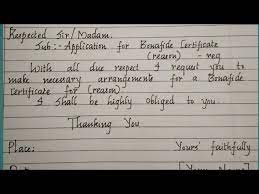 Respected Sir/Madam.
Sub:- Application for Bonafide Certificate
(reason) - req
With all due respect I request you to
make necessary arrangements for a Bonafide
Certificate for (reason)
I shall be highly obliged to you.
Thanking You
Place: Yours faithfully
[Your Name]